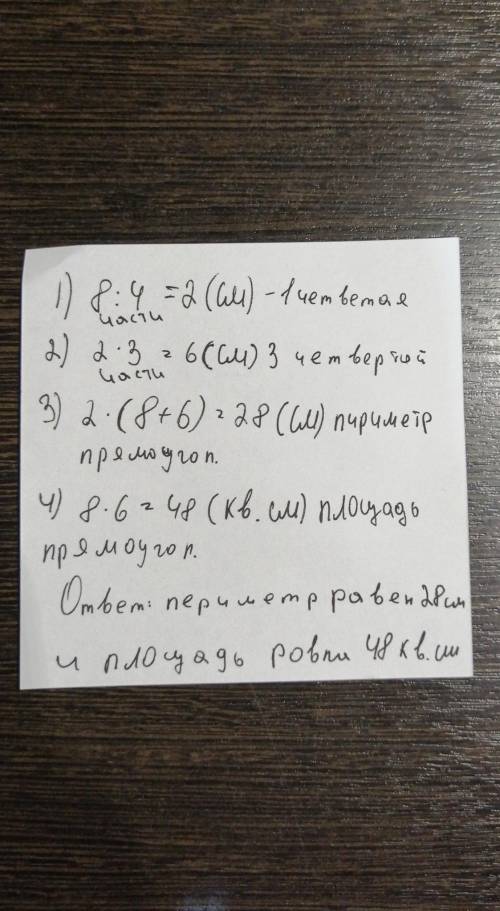 1) 8:4 = 2 (см) - 1 четветая
части
2) 2·3 = 6 (см) 3 четвертой
части
3) 2·(8+6) = 28 (см) пириметр
прямоугол.
4) 8·6 = 48 (кв. см) площадь
прямоугол.
Ответ: периметр равен 28см
и площадь ровпи 48 кв. см